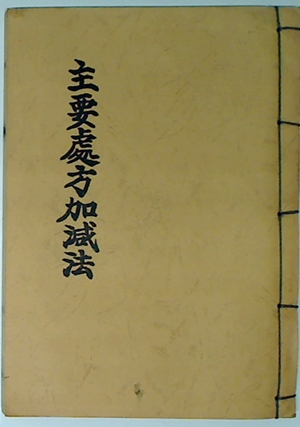 主要處方加減法